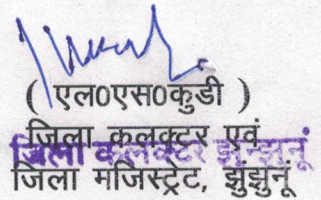 ( एल0एस0कुडी )
जिला कलक्टर एवं
जिला कलक्टर झुन्झुनूं
जिला मजिस्ट्रेट, झुंझुनूं